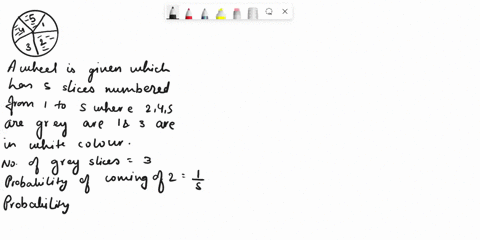 5
1
4
3
2
A wheel is given which
has 5 slices numbered
from 1 to 5 where 2,4,5
are grey are 1 & 3 are
in white colour.
No. of grey slices = 3
Probability of coming of 2 = 1/5
Probability